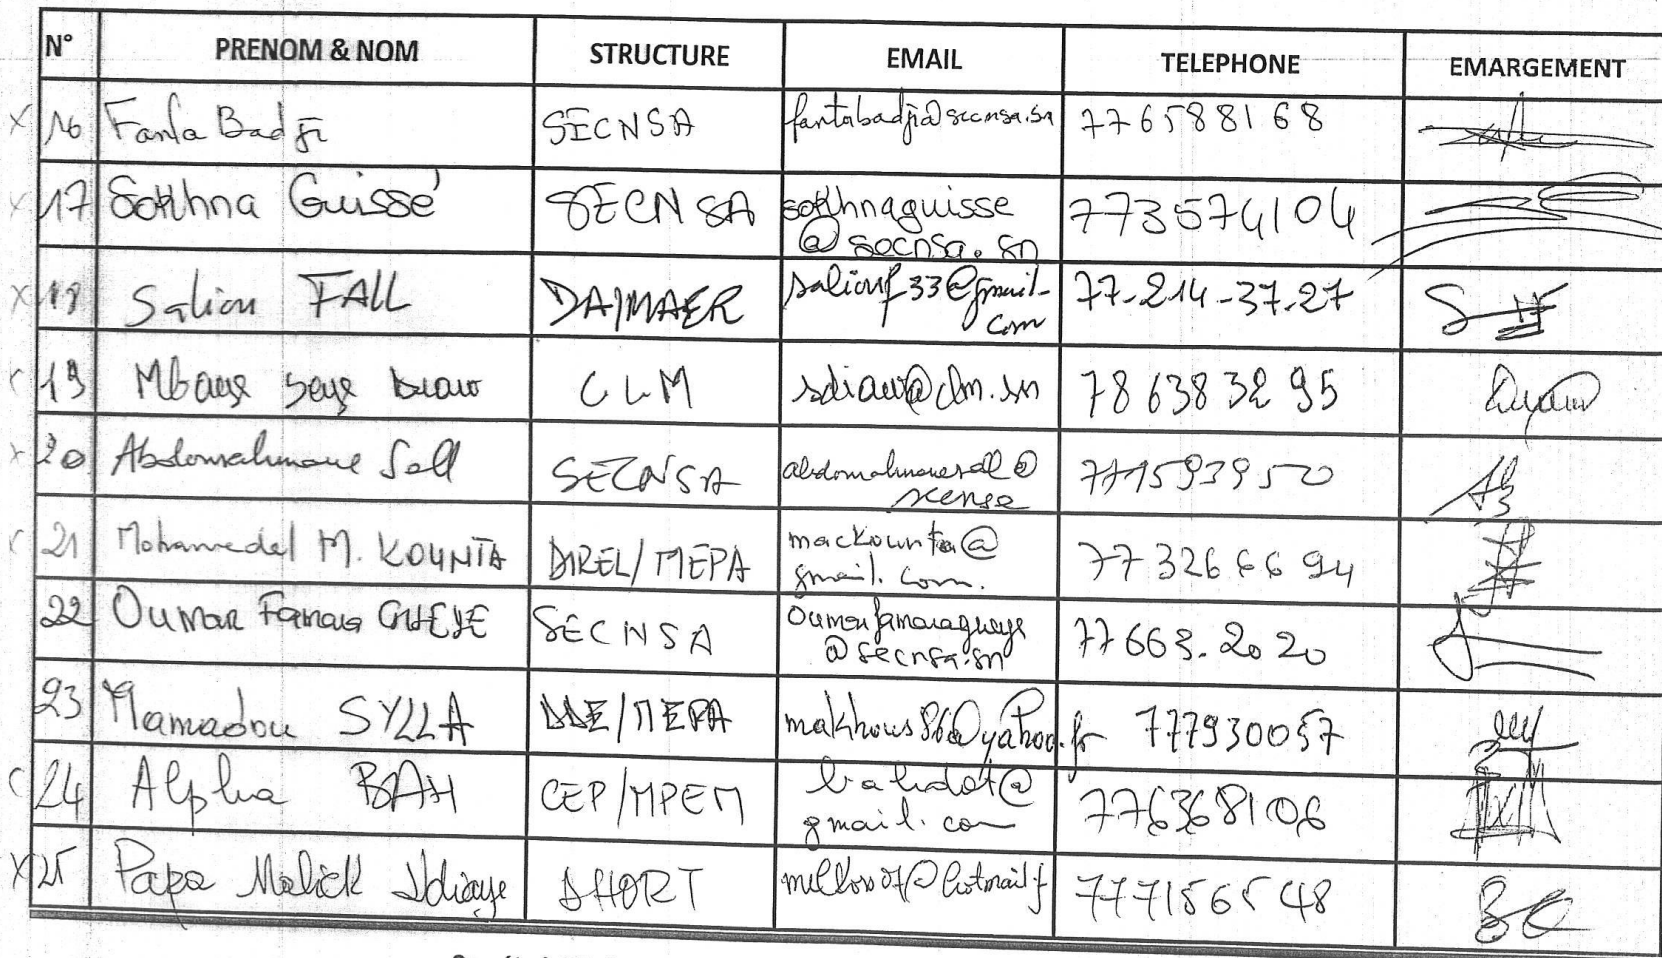 N° PRENOM & NOM STRUCTURE EMAIL TELEPHONE EMARGEMENT
X 16 Fanta Badji SECNSA fantabadji@secnsa.sn 776588168
X 17 Sokhna Guissé SECNSA sokhnaguisse 773574104
@secnsa.sn
X 18 Saliou FALL DA/MAER saliouf33@gmail- 77-214-37-27
com
19 Mbaye Seye CLM sdiaw@clm.sn 78 638 32 95
X 20 Abdourahmane Sall SECNSA abdourahmanesall@ 771593950
21 Mohamedel M. KOUNTA DIREL/MEPA mackounta@ 77 326 66 94
gmail.com.
22 Oumar Famara GUEYE SECNSA Oumarfamaragueye 77 663.20 20
@secnsa.sn
23 Mamadou SYLLA DDE/MEPA makhous86@yahoo.fr 777930057
24 Alpha BAH CEP/MPEM bahdot@ 776368106
gmail.com
X 25 Papa Malick Ndiaye DHORT 777156548